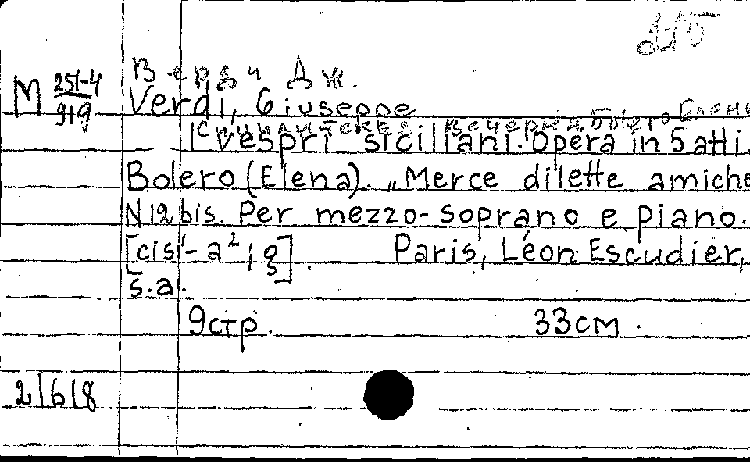 215
Верди Дж.
М 251-4/919
Verdi, Giuseppe
Сицилийская вечерня. Болеро Елены
I vespri siciliani. Opera in 5 atti.
Bolero (Elena). „Merce dilette amiche
N 12 bis. Per mezzo-soprano e piano.
[cis¹-a²; g]. Paris, Léon Escudier,
s.a.
9 стр. 33 см.
2/6/8